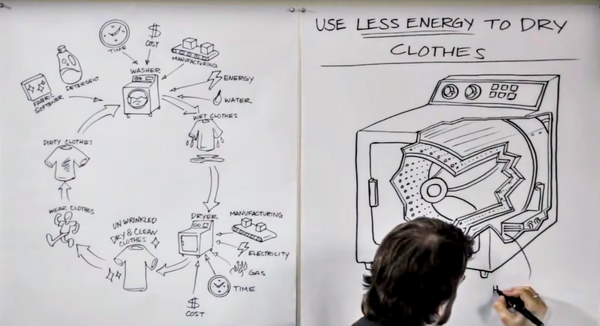 TIME
$
COST
MANUFACTURING
WASHER
DETERGENT
FABRIC
SOFTENER
ENERGY
WATER
WET CLOTHES
DIRTY CLOTHES
WEAR CLOTHES
UNWRINKLED
DRY & CLEAN
CLOTHES
DRYER
MANUFACTURING
ELECTRICITY
GAS
TIME
$
COST
USE LESS ENERGY TO DRY
CLOTHES